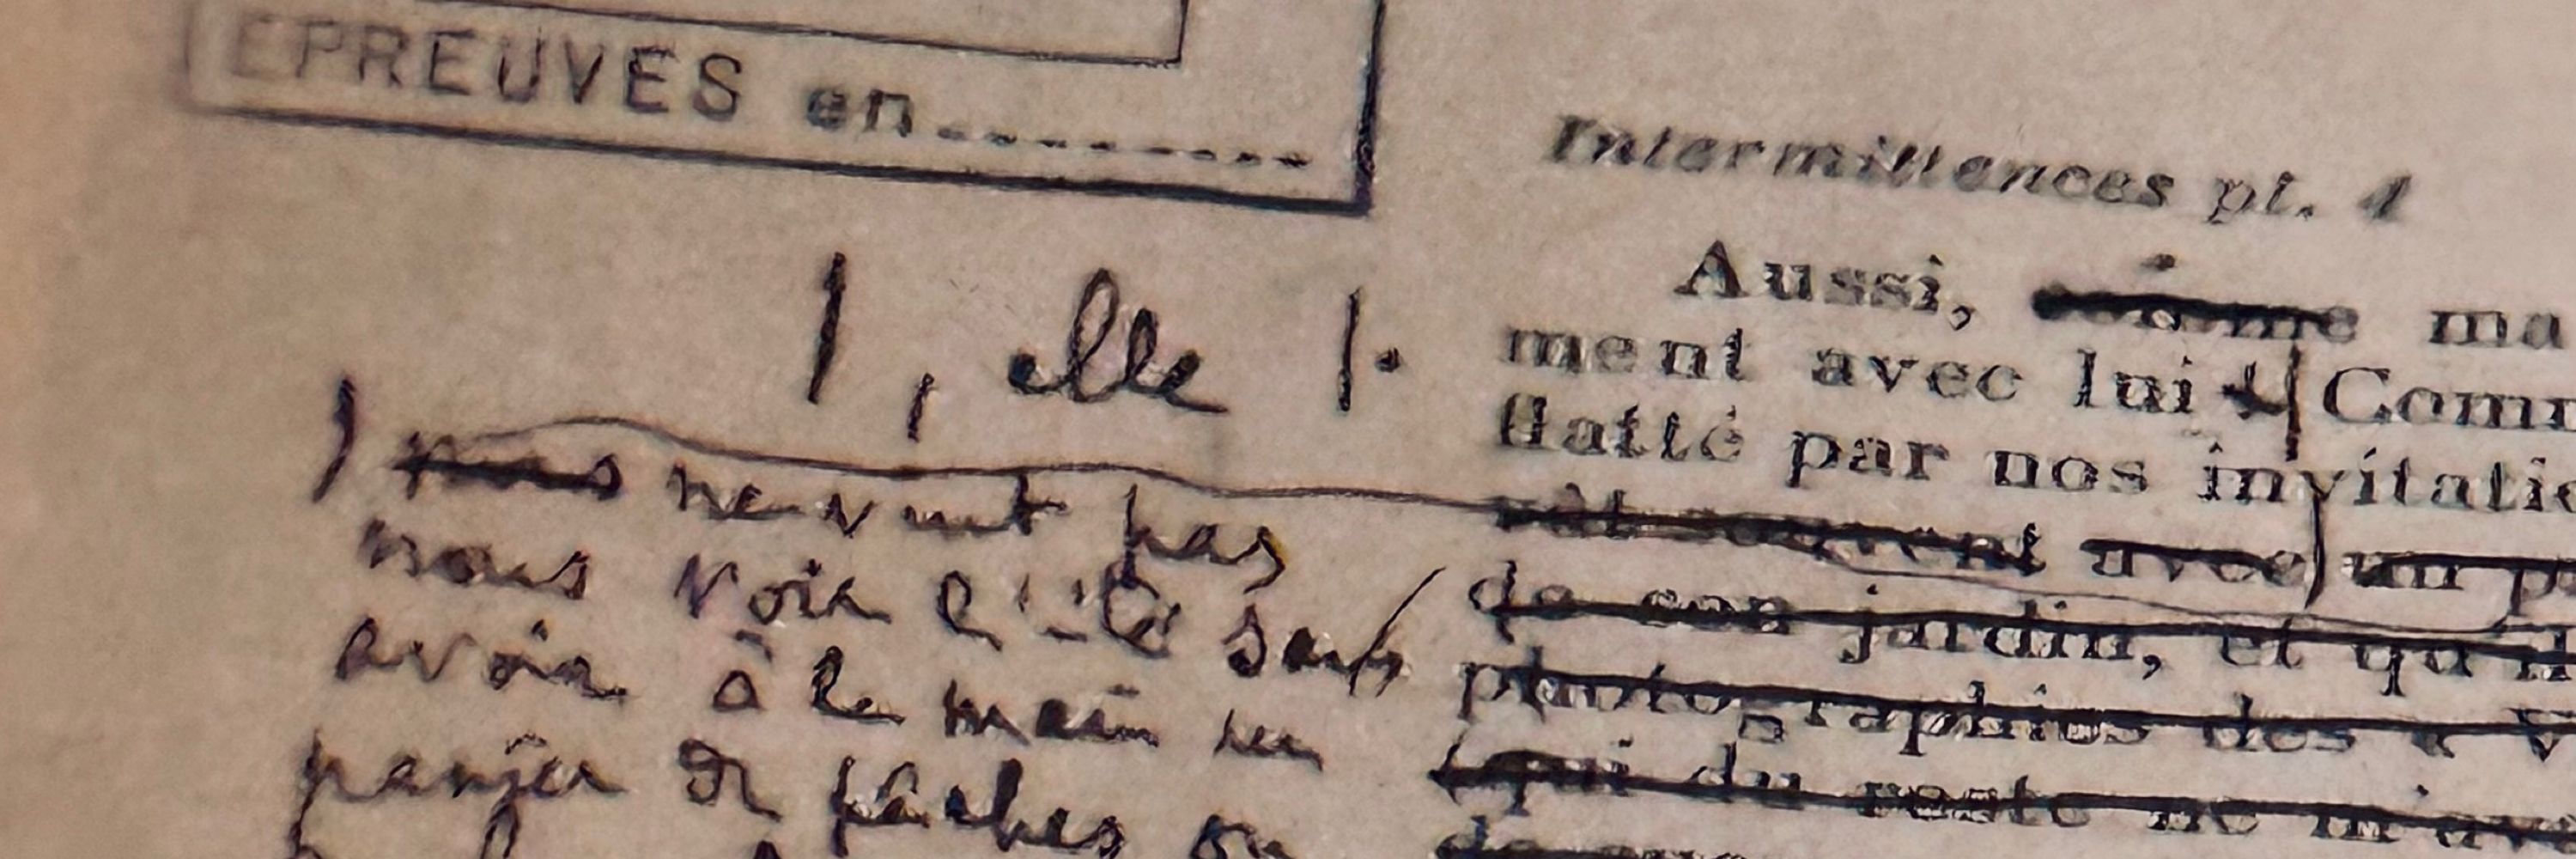 EPREUVES en
Intermittences pt. 4
Aussi, comme ma
, elle
ment avec lui Com
flatté par nos invitatio
nous ne vint pas
avec un p
nous voir l'été sans
de son jardin, et qu'il
avoir à la main un
photographies des « V
panier de pêches ou
(qui du reste ne m'av